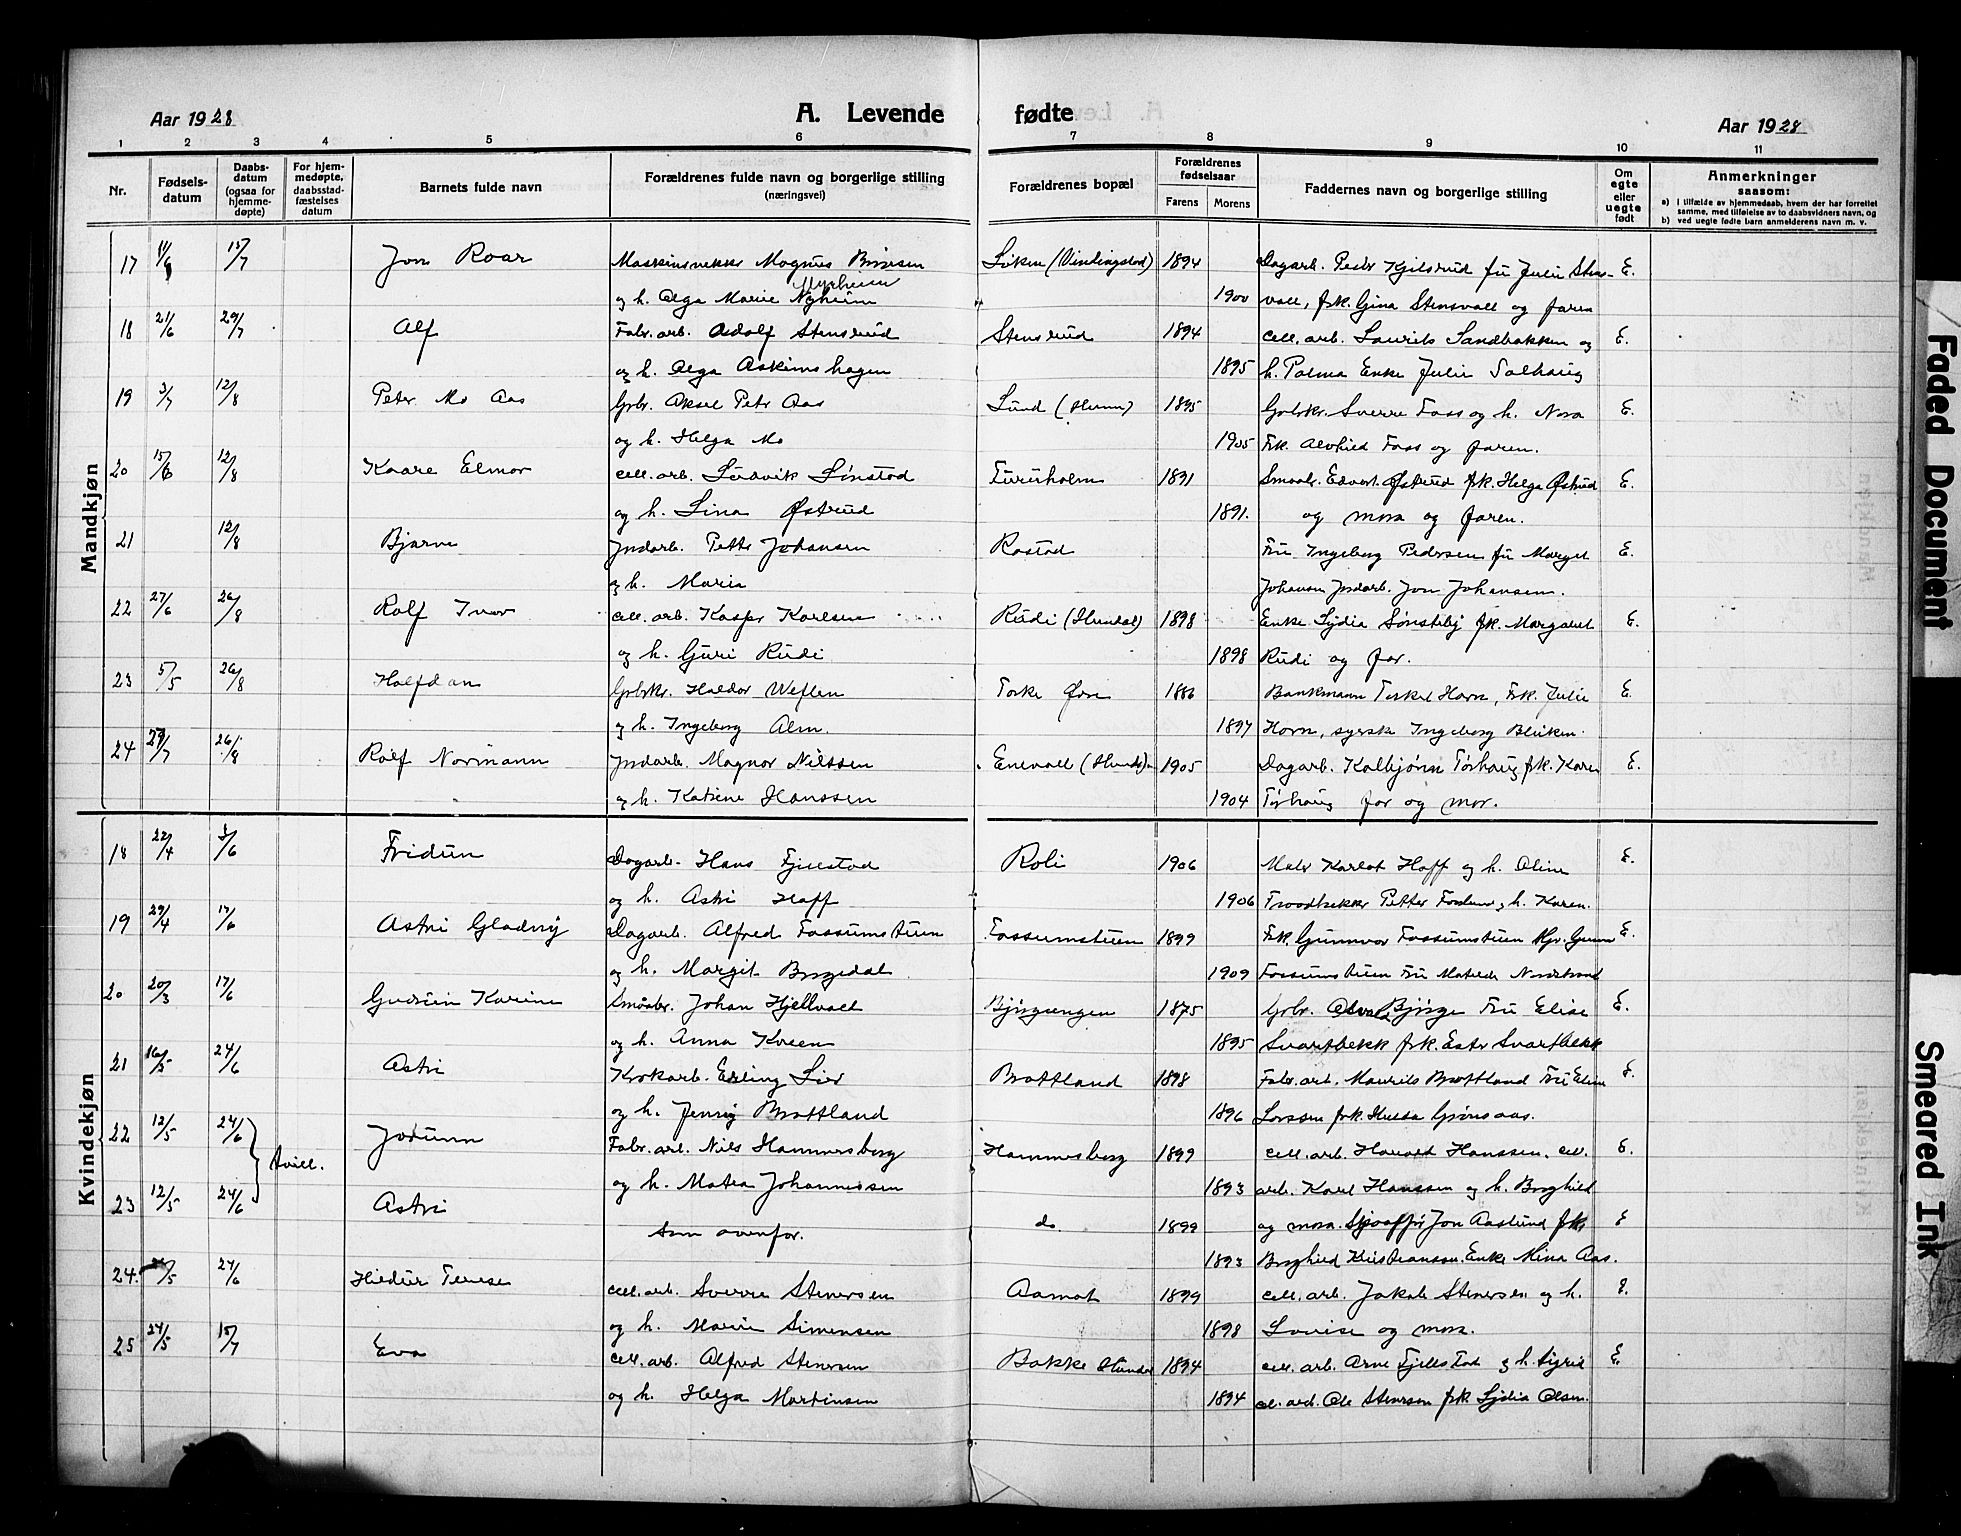 Aar 1928 A. Levende fødte Aar 1928
1 2 3 4 5 6 7 8 9 10 11
Nr. Fødsels-datum Daabs-datum (ogsaa for hjemme-døpte) For hjem-medøpte, daabsstad-fæstelses datum Barnets fulde navn Forældrenes fulde navn og borgerlige stilling (næringsvei) Forældrenes bopæl Forældrenes fødselsaar Farens Morens Faddernes navn og borgerlige stilling Om egte eller uegte født Anmerkninger saasom:
a) i tilfælde av hjemmedaab, hvem der har forrettet samme, med tilføielse av to daabsvidners navn, og
b) ved uegte fødte barn anmelderens navn m. v.
Mandkjøn
17 11/6 15/7 Jon Roar Magnus Løken 1894 Dagarb. Peder Kjilsrud fru Julie Stens- E.
og h. Olga Marie Nyheim Myrheim 1900 vall, frk. Gina Stensvall og faren
18 21/6 29/7 Alf Fabr. arb. Adolf Stensrud Stensrud 1894 cell. arb. Laurits Sandbakken og E.
og h. Olga Askimshagen 1895 h. Palma Enke Julie Solhaug
19 3/7 12/8 Peter Mo Aas Gbr. Aksel Petr Aas Lund (Hunn) 1895 Gbrkr. Sverre Foss og h. Nora E.
og h. Helga Mo 1905 Frk. Alvhild Foss og faren.
20 15/6 12/8 Kaare Elmar cell. arb. Ludvik Lønstad Fururholm 1891 Smaabr. Edvart Østrud frk. Helga Østrud E.
og h. Lina Østrud 1891. og mora og faren.
21 12/8 Bjarne Jndarb. Petter Johansen Rostad Fru Ingeborg Pedersen fru Margit E.
og h. Maria Johansen Jndarb. Jon Johansen.
22 27/6 26/8 Rolf Ivar cell. arb. Kasper Karlsen Rudi (Hundal) 1898 Enke Lydia Sønsteby frk. Margaret E.
og h. Guri Rudi 1898 Rudi og far.
23 5/5 26/8 Halfdan Gbrkr. Haldor Weflen Torke Øvre 1886 Bankmann Torkel Horn, Frk. Julie E.
og h. Ingeborg Alm. 1897 Horn, sysk Ingeborg Bliken.
24 29/7 26/8 Rolf Normann Jndarb. Magnor Nilssen Enevall 1905 Dagarb. Kolbjørn Torhaug frk. Kare E.
og h. Katrine Hanssen 1904 Torhaug far og mor.
Kvindekjøn
18 22/4 3/6 Fridun Dagarb. Hans Fjellstad Roli 1906 Maler Karlot Hoff og h. Oline E.
og h. Astri Hoff 1906 Petter h. Karen.
19 29/4 17/6 Astri Gladny Dagarb. Alfred Fossumstuen Fossumstuen 1899 Frk. Gunnvor Fossumstuen E.
og h. Margit Borgedal 1909 Fossumstuen Fru Matilde Nordstrand
20 20/3 17/6 Gudrun Karine Smaabr. Johan Hjellvall Bjørgeengen 1875 Gbr. Bjørge Fru Elise E.
og h. Anna Kveen 1895 Svartbekk frk. Ester Svartbekk
21 16/5 24/6 Astri Krokarb. Erling Lier Brottland 1898 Fabr. arb. Maurits Brottland Fru Eline E.
og h. Jenny Brottland 1896 Larssen frk. Hulda Grønsaas.
22 12/5 24/6 tvill. Jorunn Fabr. arb. Nils Hammersborg Hammersborg 1899 cell. arb. Harald Hanssen. cell. E.
og h. Matea Johannessen 1893 arb. Karl Hanssen og h. Borghild
23 12/5 24/6 Astri do 1899 og mora. Jon Aaslund frk E
som ovenfor. 1893 Borghild Kristiansen. Enke Mina Aas.
24. 24/5 24/6 Hildur Terese cell. arb. Sverre Stenersen Aamot 1899 cell. arb. Jakob Stenersen og h. E.
og h. Marie Simensen 1898 Lovise og mora.
25 24/5 15/7 Eva cell. arb. Alfred Stenersen Bakke 1894 cell. arb. Arne Fjellstad og h. Sigrid E.
og h. Helga Martinsen 1894 cel. arb. Ole Stenersen frk Lydia Olsen.
Faded Document
Smeared Ink